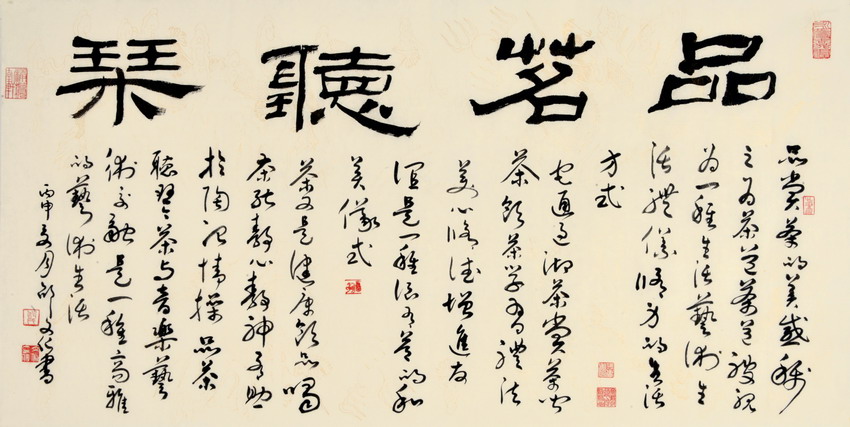 品茗聽琹
品賞茶的美感稱
之為茶道茶道被視
為一種生活藝術生
活禮儀修身的生活
方式
它通過沏茶賞茶聞
茶飲茶學習禮法
美心修德增進友
誼是一種很有益的和
美儀式
茶又是健康飲品喝
茶能靜心靜神有助
於陶冶情操品茶
聽琹茶与音樂藝
術交融是一種高雅
的藝術生活
丙申 月 文仁書